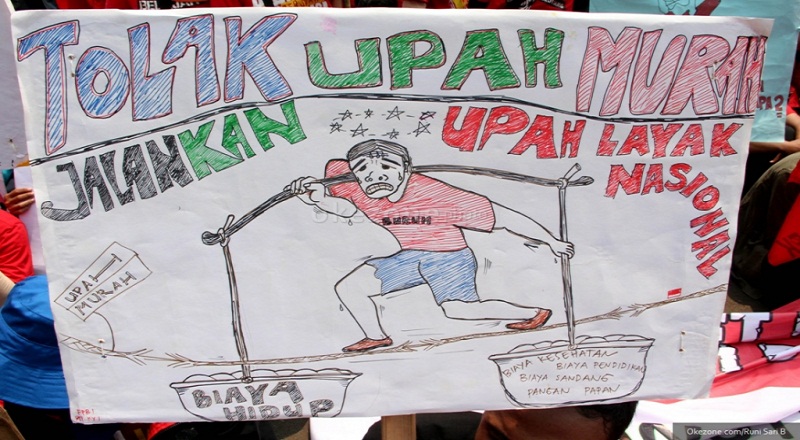 TOLAK UPAH MURAH
JALANKAN UPAH LAYAK
NASIONAL
BURUH
UPAH
MURAH
BIAYA
HIDUP
BIAYA KESEHATAN
BIAYA PENDIDIKAN
BIAYA SANDANG
PANGAN PAPAN
Okezone.com/Runi Sari B